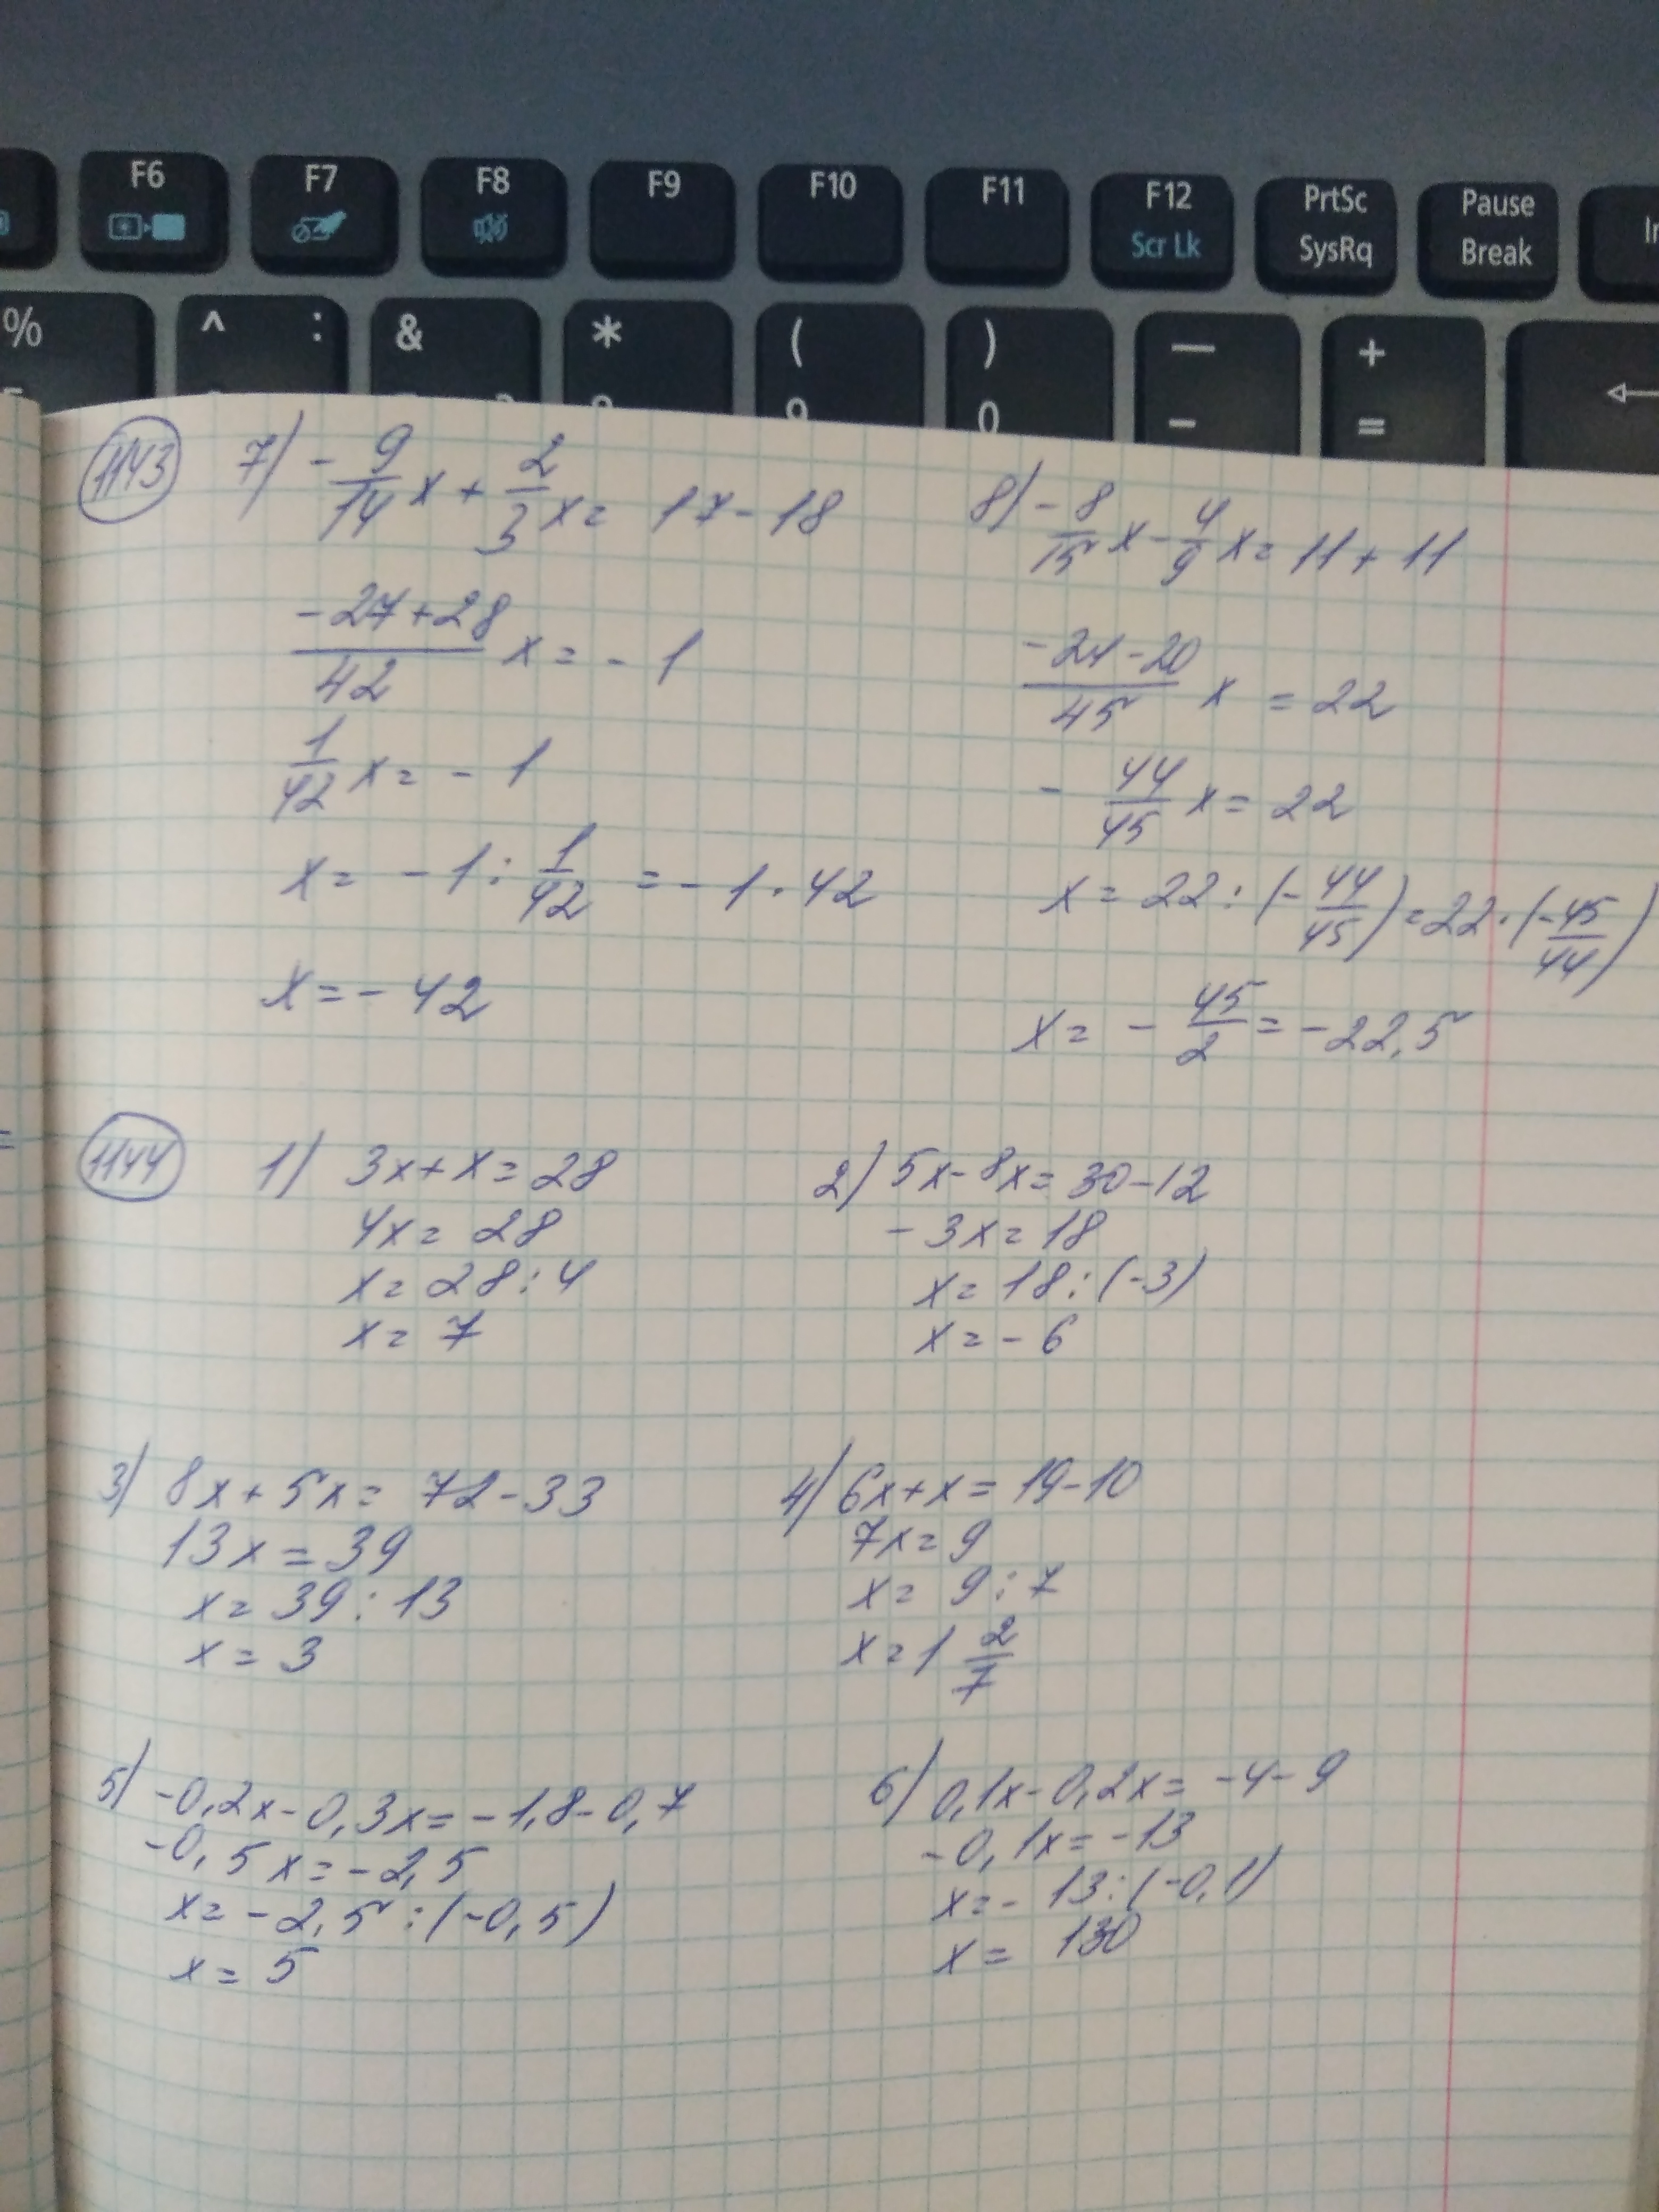 F6 F7 F8 F9 F10 F11 F12 PrtSc Pause
Scr Lk SysRq Break
% ^ : & * ( ) — +
9 0 - =
1143 7) -9/14 x + 2/3 x = 17 - 18
(-27+28)/42 x = -1
1/42 x = -1
x = -1 : 1/42 = -1 · 42
x = -42
8) -8/15 x - 4/9 x = 11 + 11
(-24-20)/45 x = 22
-44/45 x = 22
x = 22 : (-44/45) = 22 · (-45/44)
x = -45/2 = -22,5
1144 1) 3x + x = 28
4x = 28
x = 28 : 4
x = 7
2) 5x - 8x = 30 - 12
-3x = 18
x = 18 : (-3)
x = -6
3) 8x + 5x = 72 - 33
13x = 39
x = 39 : 13
x = 3
4) 6x + x = 19 - 10
7x = 9
x = 9 : 7
x = 1 2/7
5) -0,2x - 0,3x = -1,8 - 0,7
-0,5x = -2,5
x = -2,5 : (-0,5)
x = 5
6) 0,1x - 0,2x = -4 - 9
-0,1x = -13
x = -13 : (-0,1)
x = 130